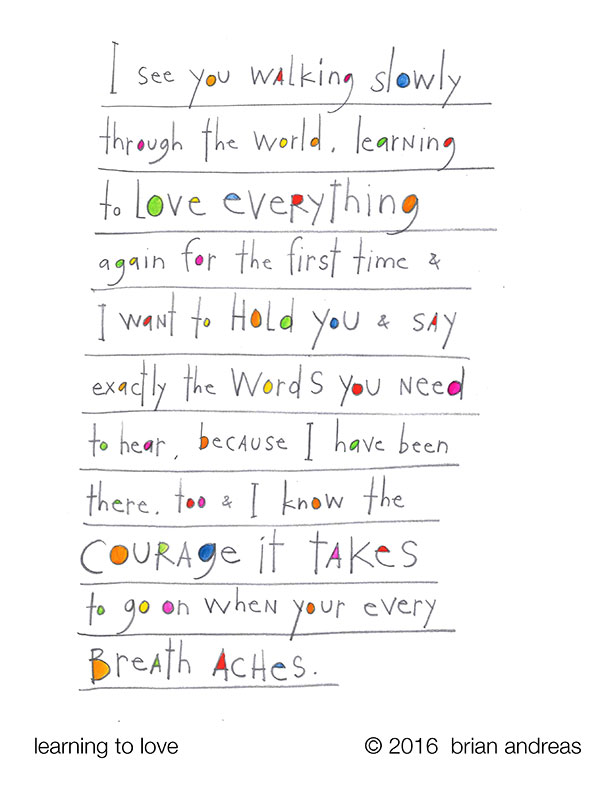 I see you walking slowly
through the world, learning
to love everything
again for the first time &
I want to hold you & say
exactly the words you need
to hear, because I have been
there, too & I know the
courage it takes
to go on when your every
breath aches.
learning to love
© 2016 brian andreas